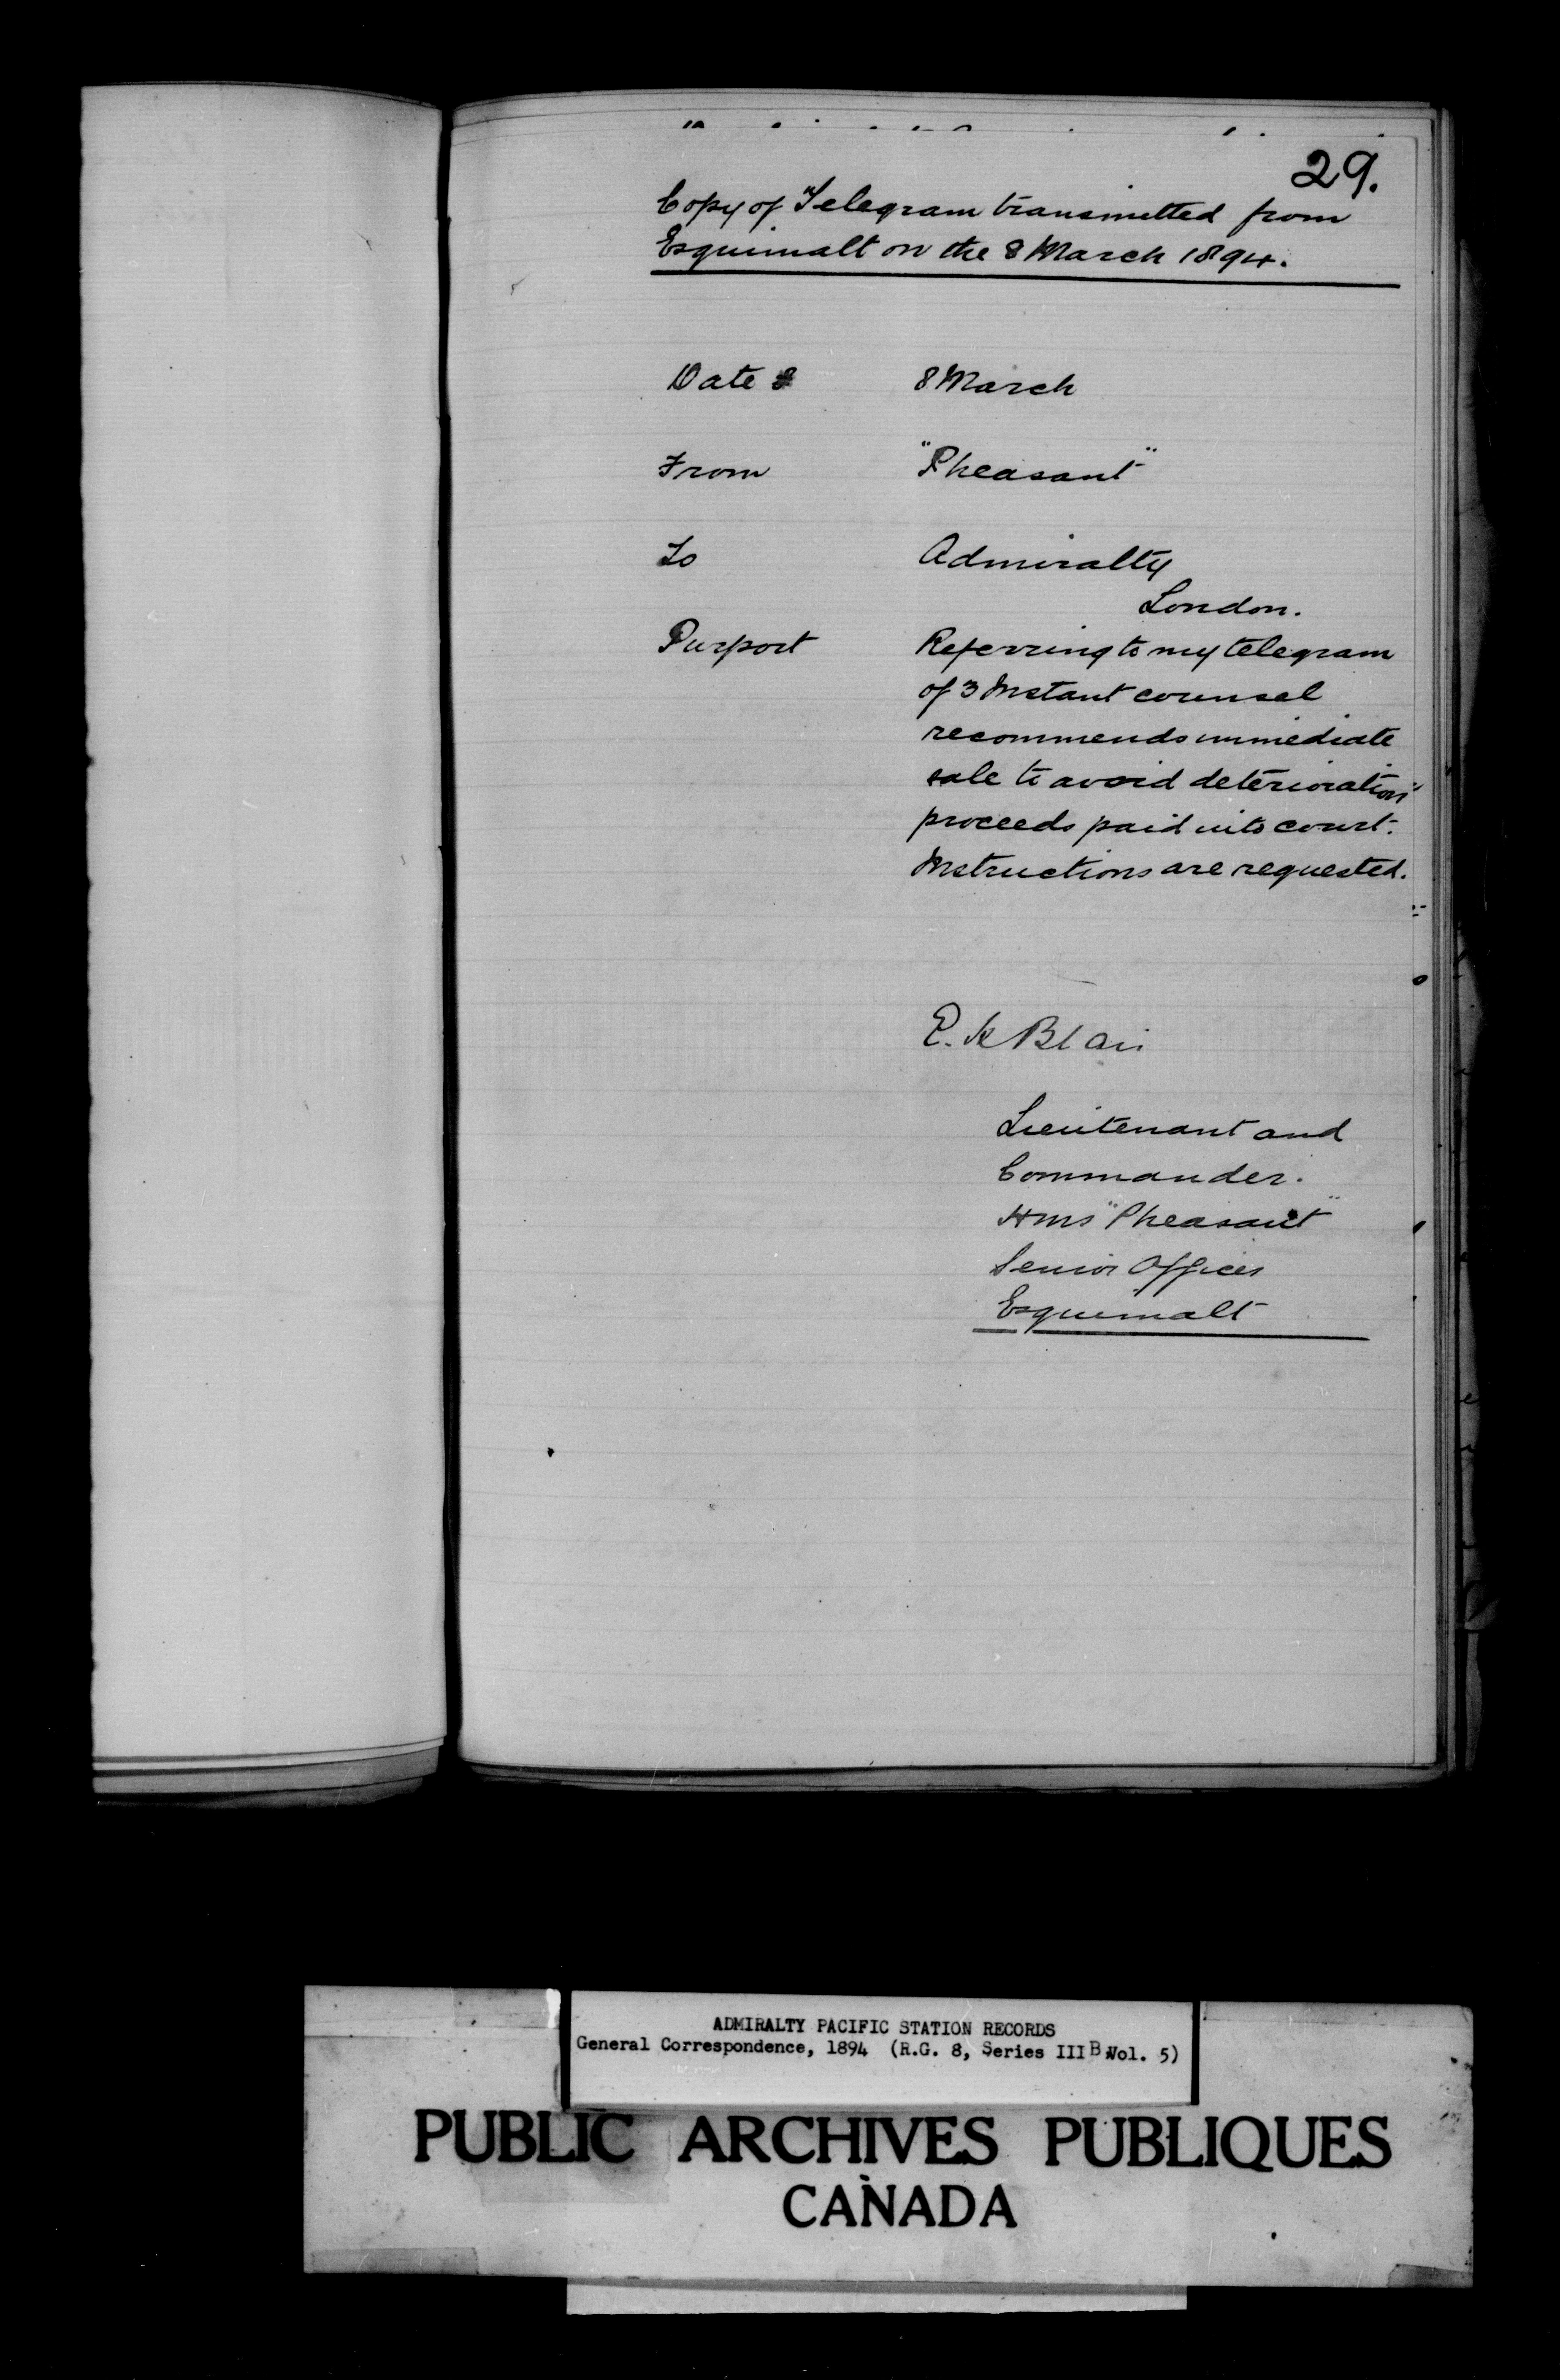 29.
Copy of Telegram transmitted from
Esquimalt on the 8 March 1894.
Date
8 March
From
"Pheasant"
To
Admiralty
London.
Purport
Referring to my telegram
of 3 Instant counsel
recommends immediate
sale to avoid deterioration
proceeds paid into court.
Instructions are requested.
E. K Blair
Lieutenant and
Commander.
HMS "Pheasant"
Senior Officer
Esquimalt
ADMIRALTY PACIFIC STATION RECORDS
General Correspondence, 1894 (R.G. 8, Series III B Vol. 5)
PUBLIC ARCHIVES PUBLIQUES
CANADA